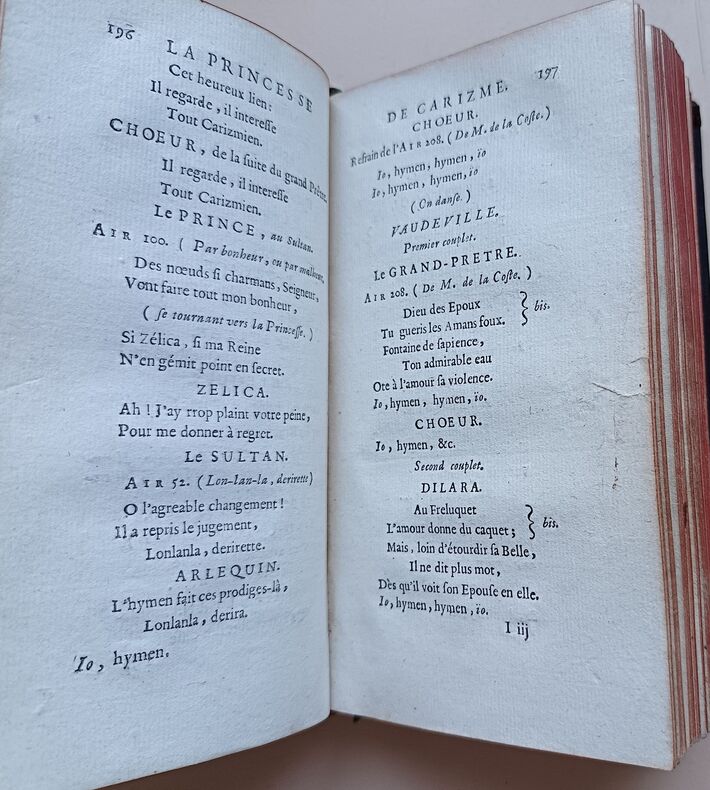 196
LA PRINCESSE
Cet heureux lien:
Il regarde, il interesse
Tout Carizmien.
CHOEUR, de la suite du grand Prêtre.
Il regarde, il interesse
Tout Carizmien.
Le PRINCE, au Sultan.
AIR 100. (Par bonheur, ou par malheur.
Des nœuds si charmans, Seigneur,
Vont faire tout mon bonheur,
(se tournant vers la Princesse.)
Si Zélica, si ma Reine
N'en gémit point en secret.
ZELICA.
Ah! J'ay rrop plaint votre peine,
Pour me donner à regret.
Le SULTAN.
AIR 52. (Lon-lan-la, derirette)
O l'agreable changement!
Il a repris le jugement,
Lonlanla, derirette.
ARLEQUIN.
L'hymen fait ces prodiges-là,
Lonlanla, derira.
Io, hymen.
DE CARIZME. 197
CHOEUR.
Refrain de l'AIR 208. (De M. de la Coste.)
Io, hymen, hymen, ïo
Io, hymen, hymen, ïo
(On danse.)
VAUDEVILLE.
Premier couplet.
Le GRAND-PRETRE.
AIR 208. (De M. de la Coste.)
Dieu des Epoux
Tu gueris les Amans foux. } bis.
Fontaine de sapience,
Ton admirable eau
Ote à l'amour sa violence.
Io, hymen, hymen, ïo.
CHOEUR.
Io, hymen, &c.
Second couplet.
DILARA.
Au Freluquet
L'amour donne du caquet; } bis.
Mais, loin d'étourdir sa Belle,
Il ne dit plus mot,
Dès qu'il voit son Epouse en elle.
Io, hymen, hymen, ïo.
I iij